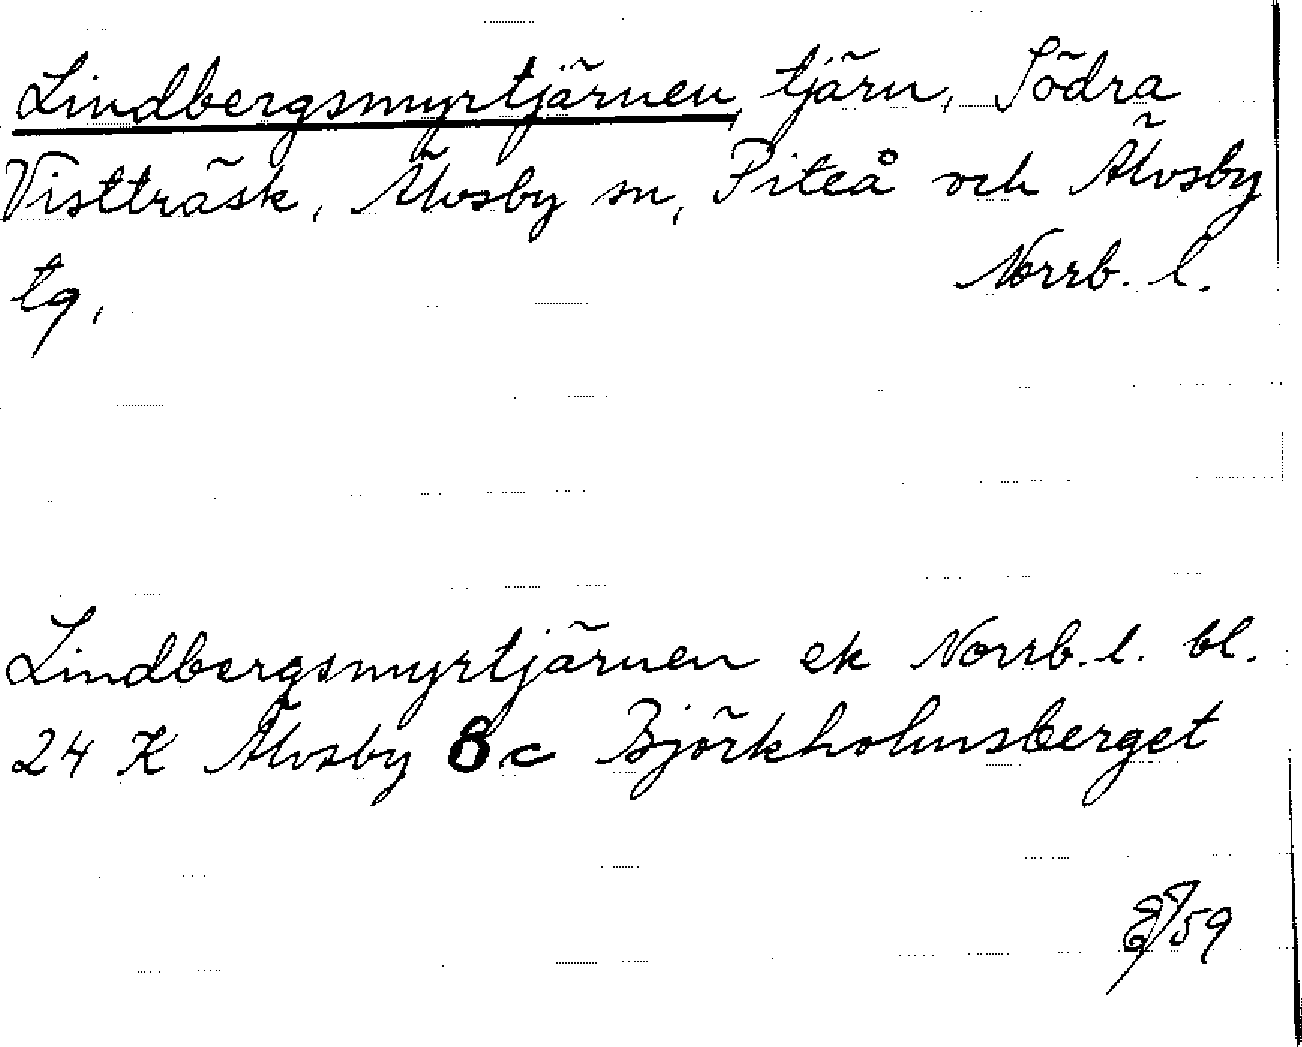 Lindbergsmyrtjärnen, tjärn, Södra
Vistträsk, Älvsby sn, Piteå och Älvsby
tg, Norrb. l.
Lindbergsmyrtjärnen ek Norrb. l. bl.
24 K Älvsby 8c Björkholmsberget
59